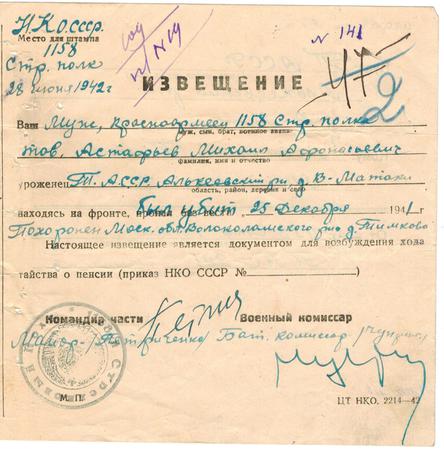 Н.К.О. СССР
Место для штампа
1158
Стр. полк
28 июня 1942 г
№ 141
47
2
ИЗВЕЩЕНИЕ
Ваш Муж, Красноармеец 1158 Стр. полка
муж, сын, брат, военное звание
тов. Астафьев Михаил Афонасьевич
фамилия, имя и отчество
уроженец Т.АССР. Алькеевский р-н д. В-Матаки
область, район, деревня и село
находясь на фронте, был убит 25 Декабря 1941 г
Похоронен Моск. обл. Волоколамского р-на д. Тимково
Настоящее извещение является документом для возбуждения хода
тайства о пенсии (приказ НКО СССР №
Командир части Военный комиссар
Майор Бат. комиссар
М.П.
ЦТ НКО. 2214—42